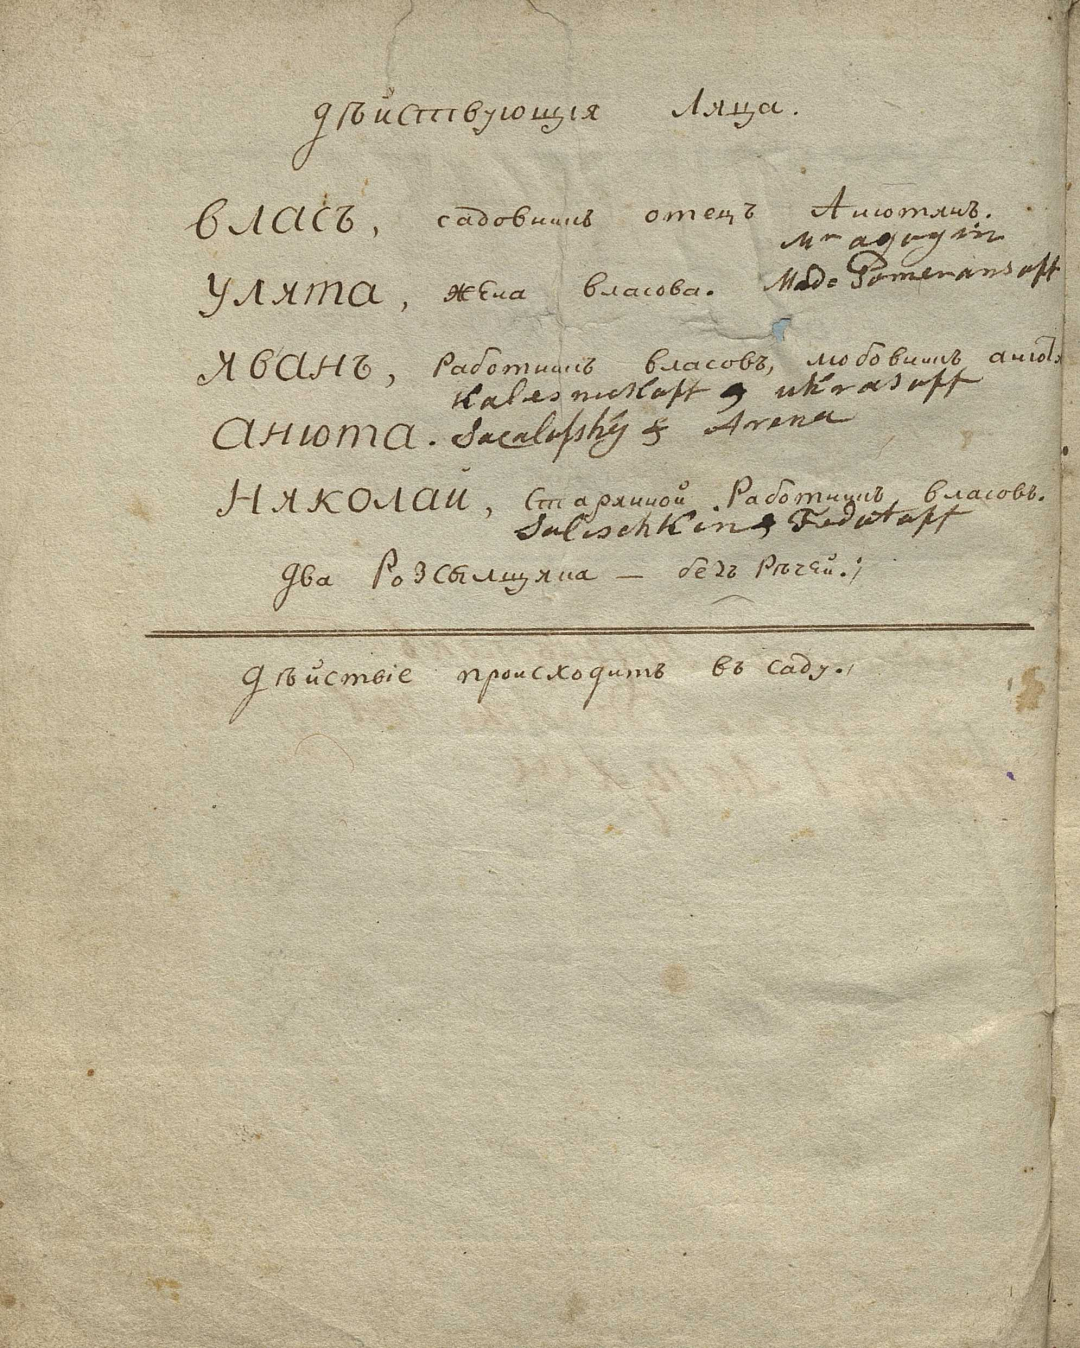 дѣйствующія Ляца.
Власъ, садовникъ отецъ Анютянъ.
Mr agugin
Улята, жена власова. Made Pomeransoff
Яванъ, Работникъ власовъ, любовникъ анют:
Kalesnickoff & ukrasoff
Анюта. Sacalofsky & Arena
Няколай, Старянной Работникъ власовъ.
Salischkin & Fedutoff
два Розсылщяка — безъ Рѣчей.
дѣйствіе происходитъ въ саду.